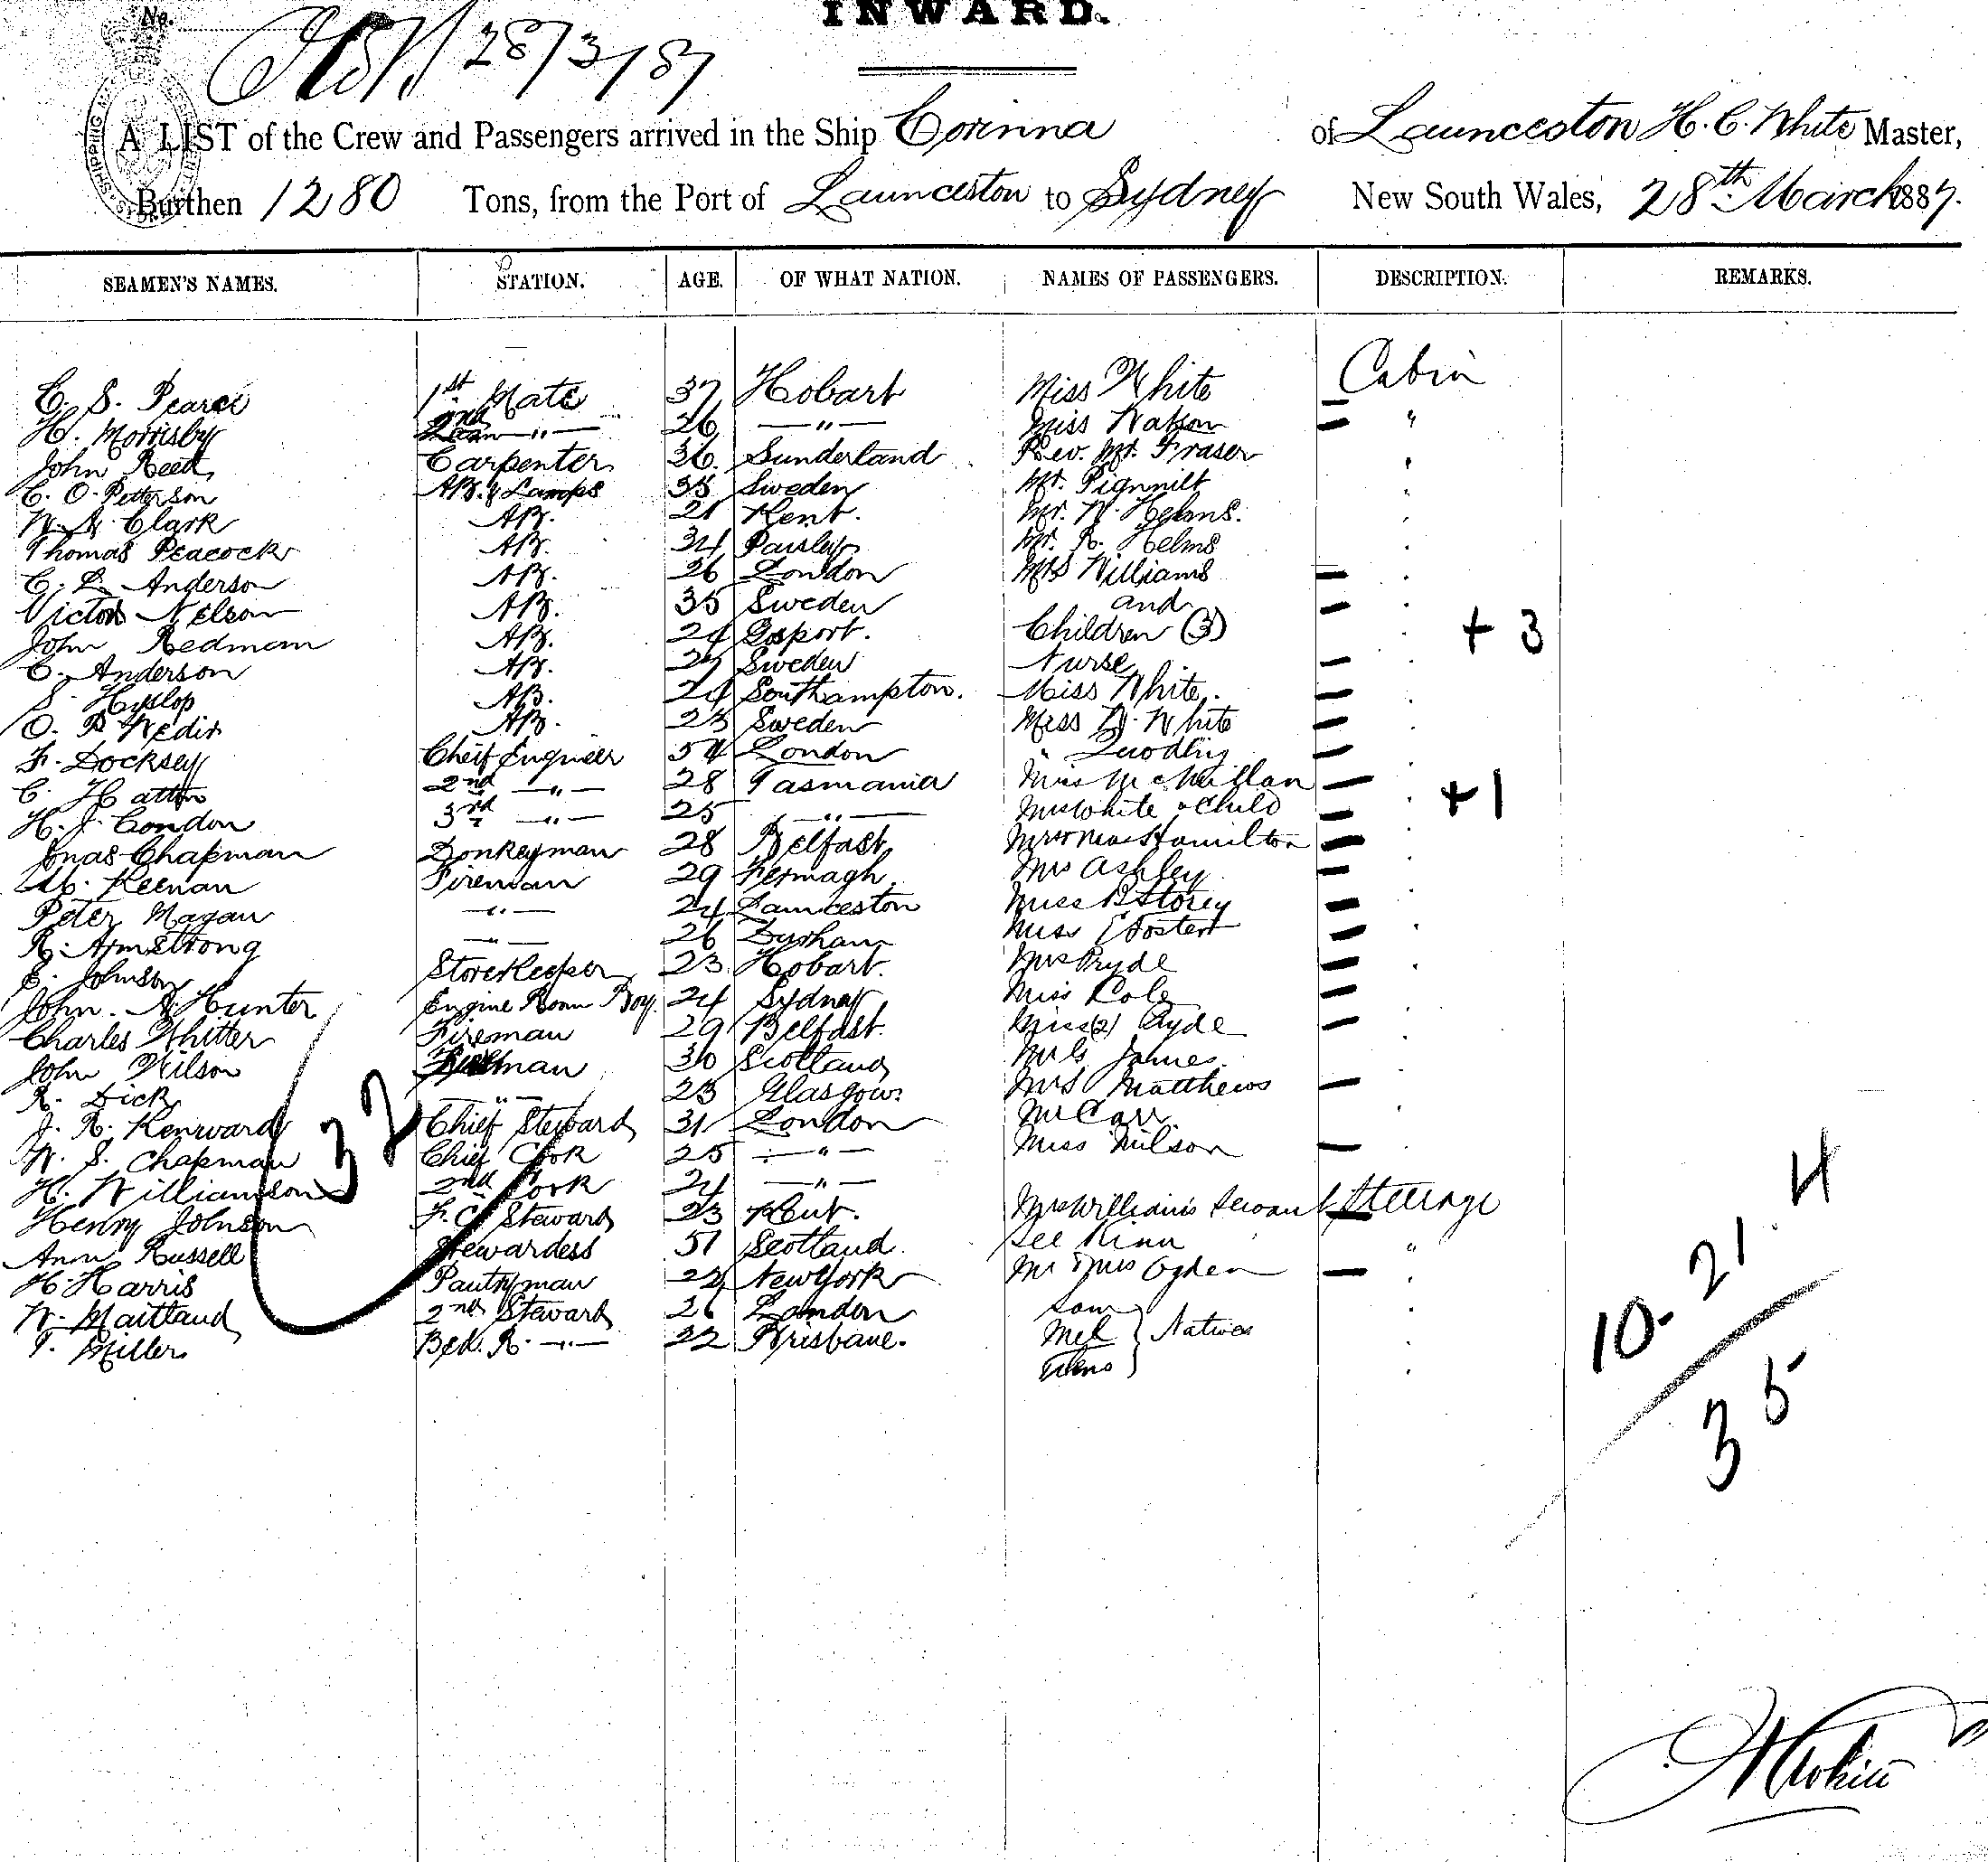 No.
INWARD.
28/3/87
A LIST of the Crew and Passengers arrived in the Ship Corinna of Launceston H. C. White Master,
Burthen 1280 Tons, from the Port of Launceston to Sydney New South Wales, 28th March 1887.
SEAMEN'S NAMES. STATION. AGE. OF WHAT NATION. NAMES OF PASSENGERS. DESCRIPTION. REMARKS.
C. S. Pearce 1st Mate 37 Hobart Miss White Cabin
H. Morrisby 2nd —"— 26 —"— Miss Watson "
John Reed Carpenter 36 Sunderland Rev. Mr. Fraser "
C. O. Petterson AB. & Lamps 35 Sweden Mr. "
W. Clark AB. 21 Kent. Mr. W. Helms.
Thomas Peacock AB. 34 Paisley Mr. R. Helms
C. L. Anderson AB. 26 London Mrs Williams
Victor Nelson AB. 35 Sweden and
John Redmann AB. 24 Gosport. Children (3) + 3
C. Anderson AB. 25 Sweden Nurse
S. Hyslop AB. 24 Southampton. Miss White.
O. P. AB. 23 Sweden Miss White
F. Docksey Cheif Engineer 54 London "
C. Hatton 2nd —"— 28 Tasmania Miss McMillan
H. J. Condon 3rd —"— 25 —"— Mrs White & Child + 1
Jonas Chapman Donkeyman 28 Belfast Hamilton
M. Keenan Fireman 29 Fermagh Mrs Ashley
Peter Magan —"— 24 Launceston Miss B Storey
R. Armstrong —"— 26 Durham Miss
E. Johnson Storekeeper 23 Hobart. Mrs Pryde
John. A. Hunter Engine Room Boy. 24 Sydney Miss Cole
Charles Whitter Fireman 29 Belfast. Miss (2) Pryde
John Wilson 30 Scotland James.
R. Dick —"— 23 Glasgow. Mrs Matthews
J. R. Kenward Chief Steward 31 London Mr Carr
W. S. Chapman Chief Cook 25 —"— Miss Wilson
H. Williamson 2nd Cook 24 —"—
Henry Johnson F. C. Steward 23 Kent. Mrs Williams Servant Steerage
Ann Russell Stewardess 51 Scotland. "
H. Harris Pantryman 22 New York Mr & Mrs Ogden
W. Maitland 2nd Steward 26 London Sam
T. Miller —"— 22 Brisbane. Natives
32
10. 21. 4
35